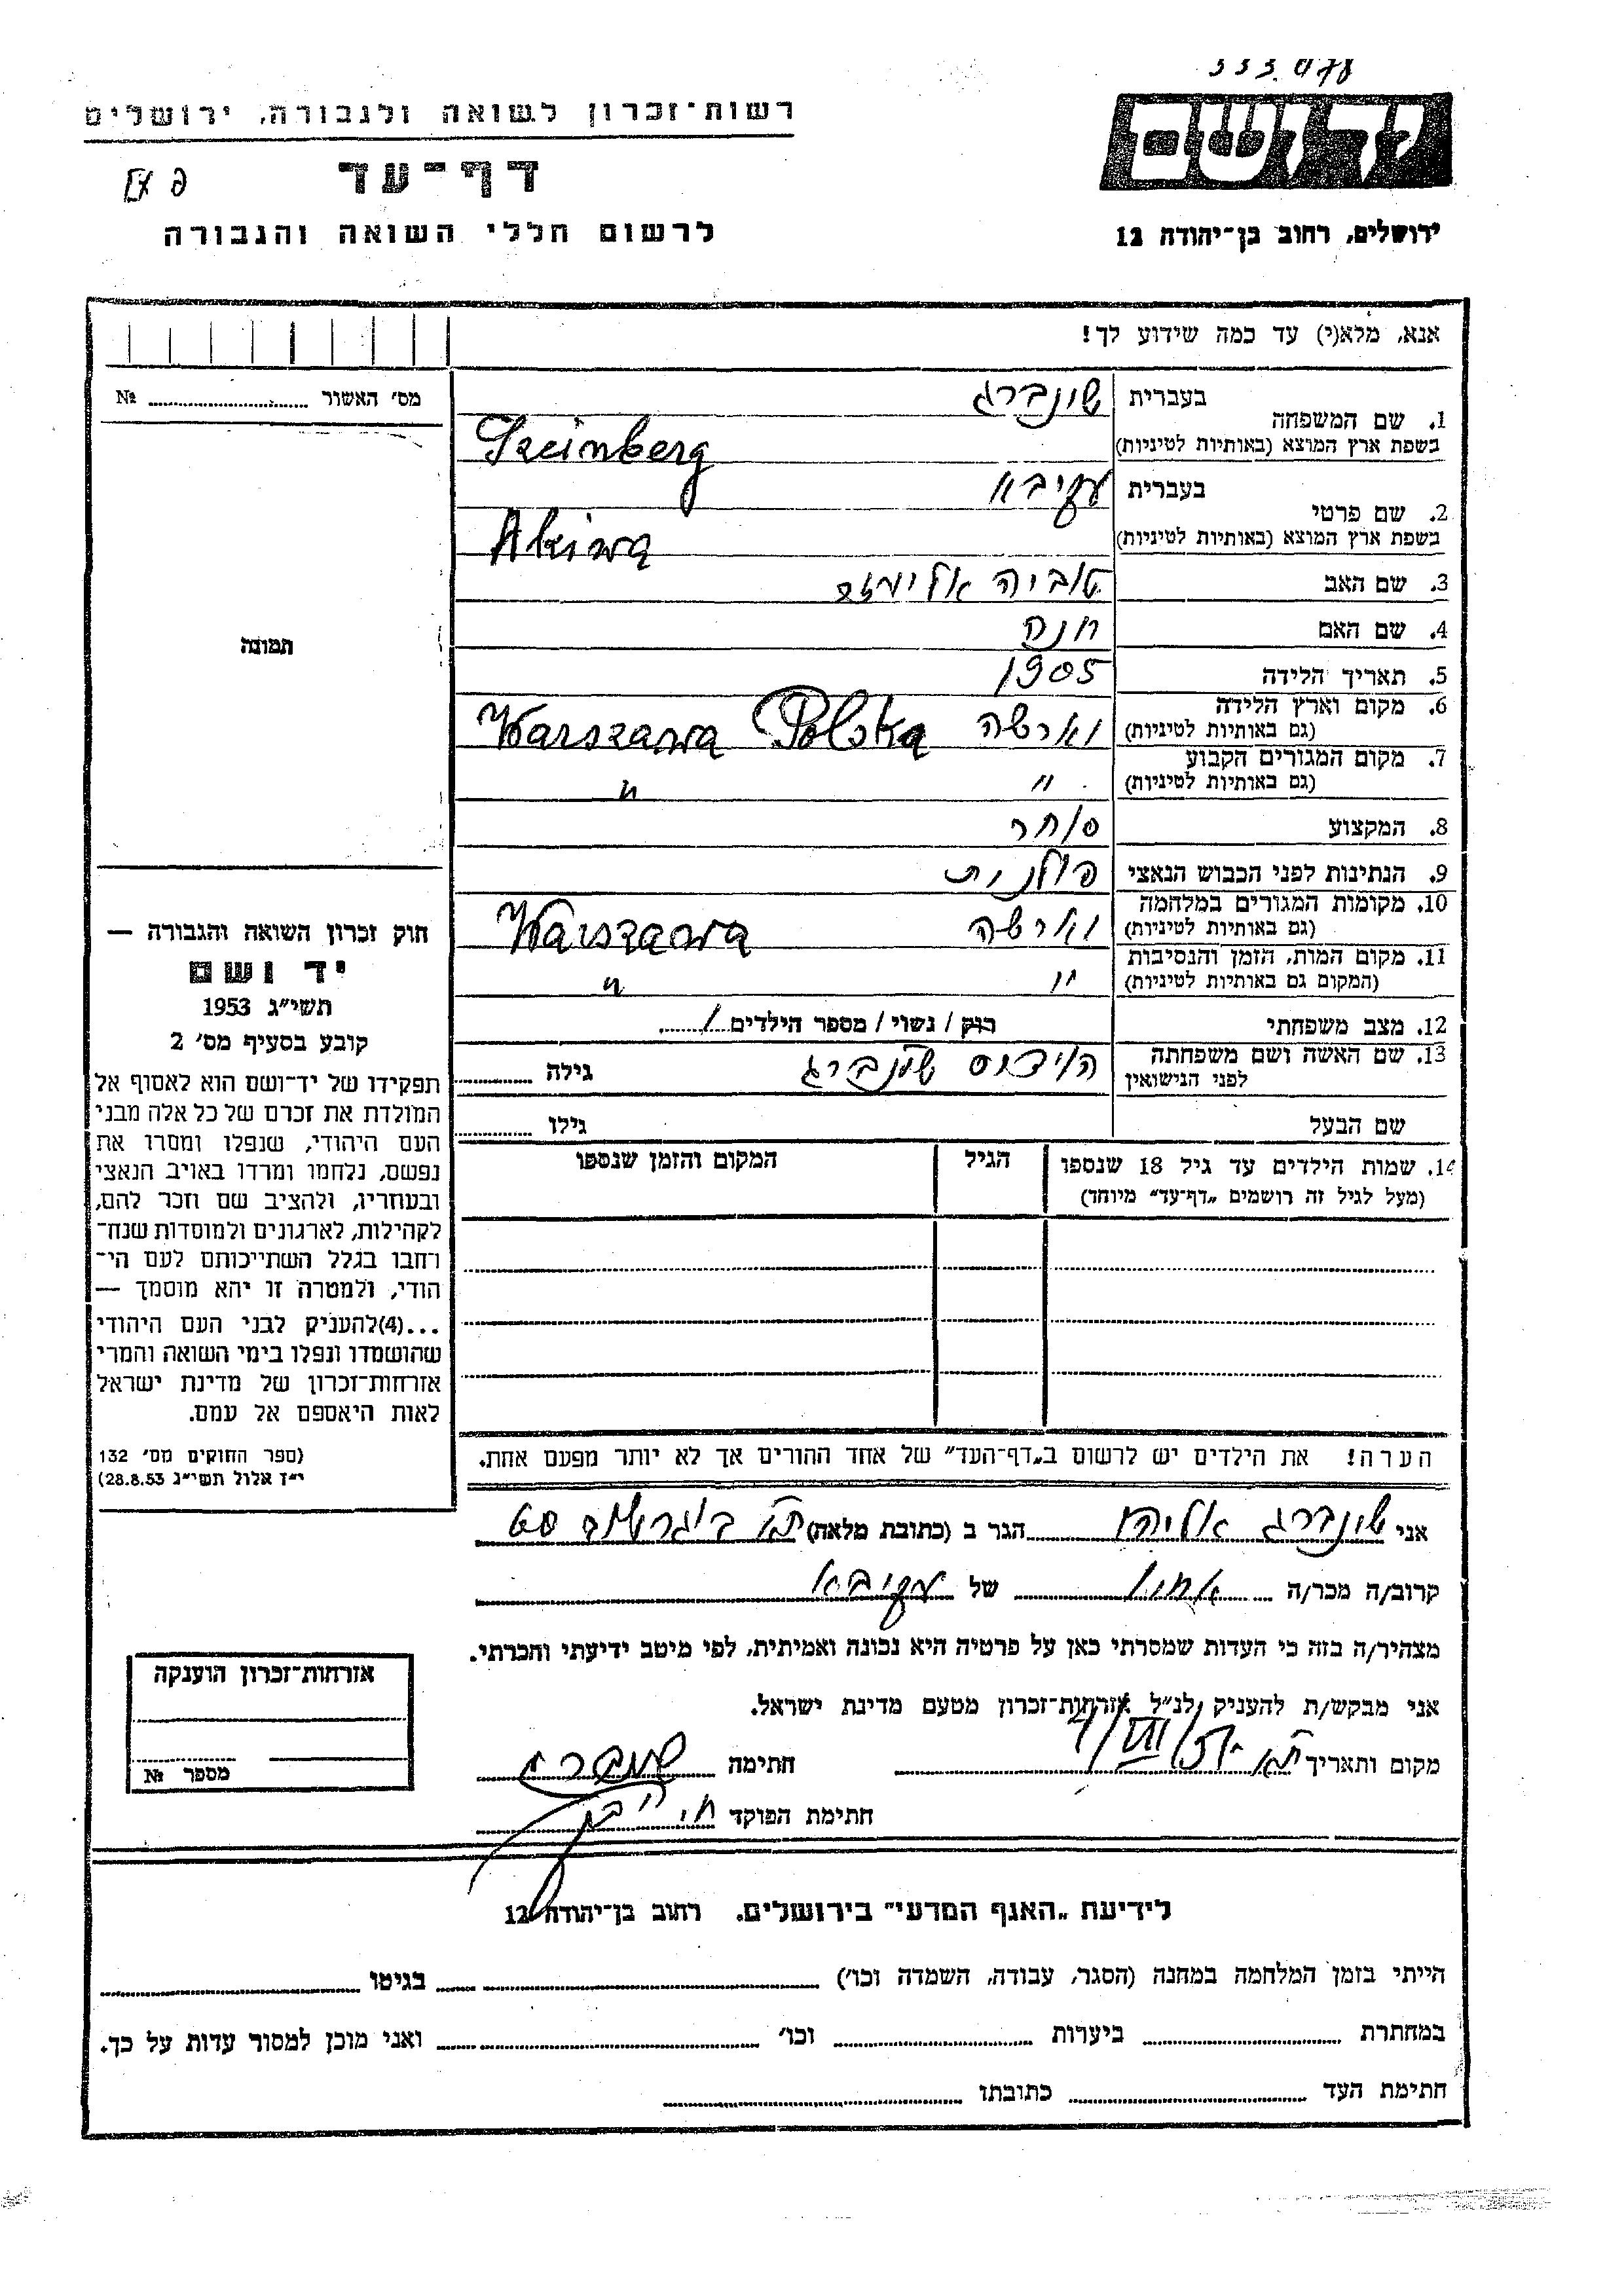 333.078
רשות־זכרון לשואה ולגבורה, ירושלים
יד ושם
דף־עד
לרשום חללי השואה והגבורה
ירושלים, רחוב בן־יהודה 12
אנא, מלא(י) עד כמה שידוע לך!
מס׳ האשור № 
1. שם המשפחה
בעברית שונברג
בשפת ארץ המוצא (באותיות לטיניות) Szeinberg
2. שם פרטי
בעברית עקיבא
בשפת ארץ המוצא (באותיות לטיניות) Akiwa
3. שם האב טוביה אלימלך
4. שם האם חנה
5. תאריך הלידה 1905
6. מקום וארץ הלידה (גם באותיות לטיניות) וארשה Warszawa Polska
7. מקום המגורים הקבוע (גם באותיות לטיניות) " "
8. המקצוע סוחר
9. הנתינות לפני הכבוש הנאצי פולנית
10. מקומות המגורים במלחמה (גם באותיות לטיניות) וארשה Warszawa
11. מקום המות, הזמן והנסיבות (המקום גם באותיות לטיניות) " "
12. מצב משפחתי רווק / נשוי / מספר הילדים 1
13. שם האשה ושם משפחתה לפני הנישואין שונברג גילה
שם הבעל גילו
14. שמות הילדים עד גיל 18 שנספו
(מעל לגיל זה רושמים „דף־עד” מיוחד)
הגיל
המקום והזמן שנספו
הערה! את הילדים יש לרשום ב„דף־העד” של אחד ההורים אך לא יותר מפעם אחת.
תמונה
חוק זכרון השואה והגבורה —
יד ושם
תשי״ג 1953
קובע בסעיף מס׳ 2
תפקידו של יד־ושם הוא לאסוף אל
המולדת את זכרם של כל אלה מבני
העם היהודי, שנפלו ומסרו את
נפשם, נלחמו ומרדו באויב הנאצי
ובעוזריו, ולהציב שם וזכר להם,
לקהילות, לארגונים ולמוסדות שנח־
רחבו בגלל השתייכותם לעם הי־
הודי, ולמטרה זו יהא מוסמך —
...(4)להעניק לבני העם היהודי
שהושמדו ונפלו בימי השואה והמרי
אזרחות־זכרון של מדינת ישראל
לאות היאספם אל עמם.
(ספר החוקים מס׳ 132
י״ז אלול תשי״ג 28.8.53)
אני שונברג אליהו הגר ב (כתובת מלאה) ת״א
קרוב/ה מכר/ה אחיו של עקיבא
מצהיר/ה בזה כי העדות שמסרתי כאן על פרטיה היא נכונה ואמיתית, לפי מיטב ידיעתי והכרתי.
אני מבקש/ת להעניק לנ״ל אזרחות־זכרון מטעם מדינת ישראל.
מקום ותאריך ת״א חתימה שונברג
חתימת הפוקד
אזרחות־זכרון הוענקה
מספר №
לידיעת „האגף המדעי” בירושלים, רחוב בן־יהודה 12
הייתי בזמן המלחמה במחנה (הסגר, עבודה, השמדה וכו׳) בגיטו
במחתרת ביערות וכו׳ ואני מוכן למסור עדות על כך.
חתימת העד כתובתו